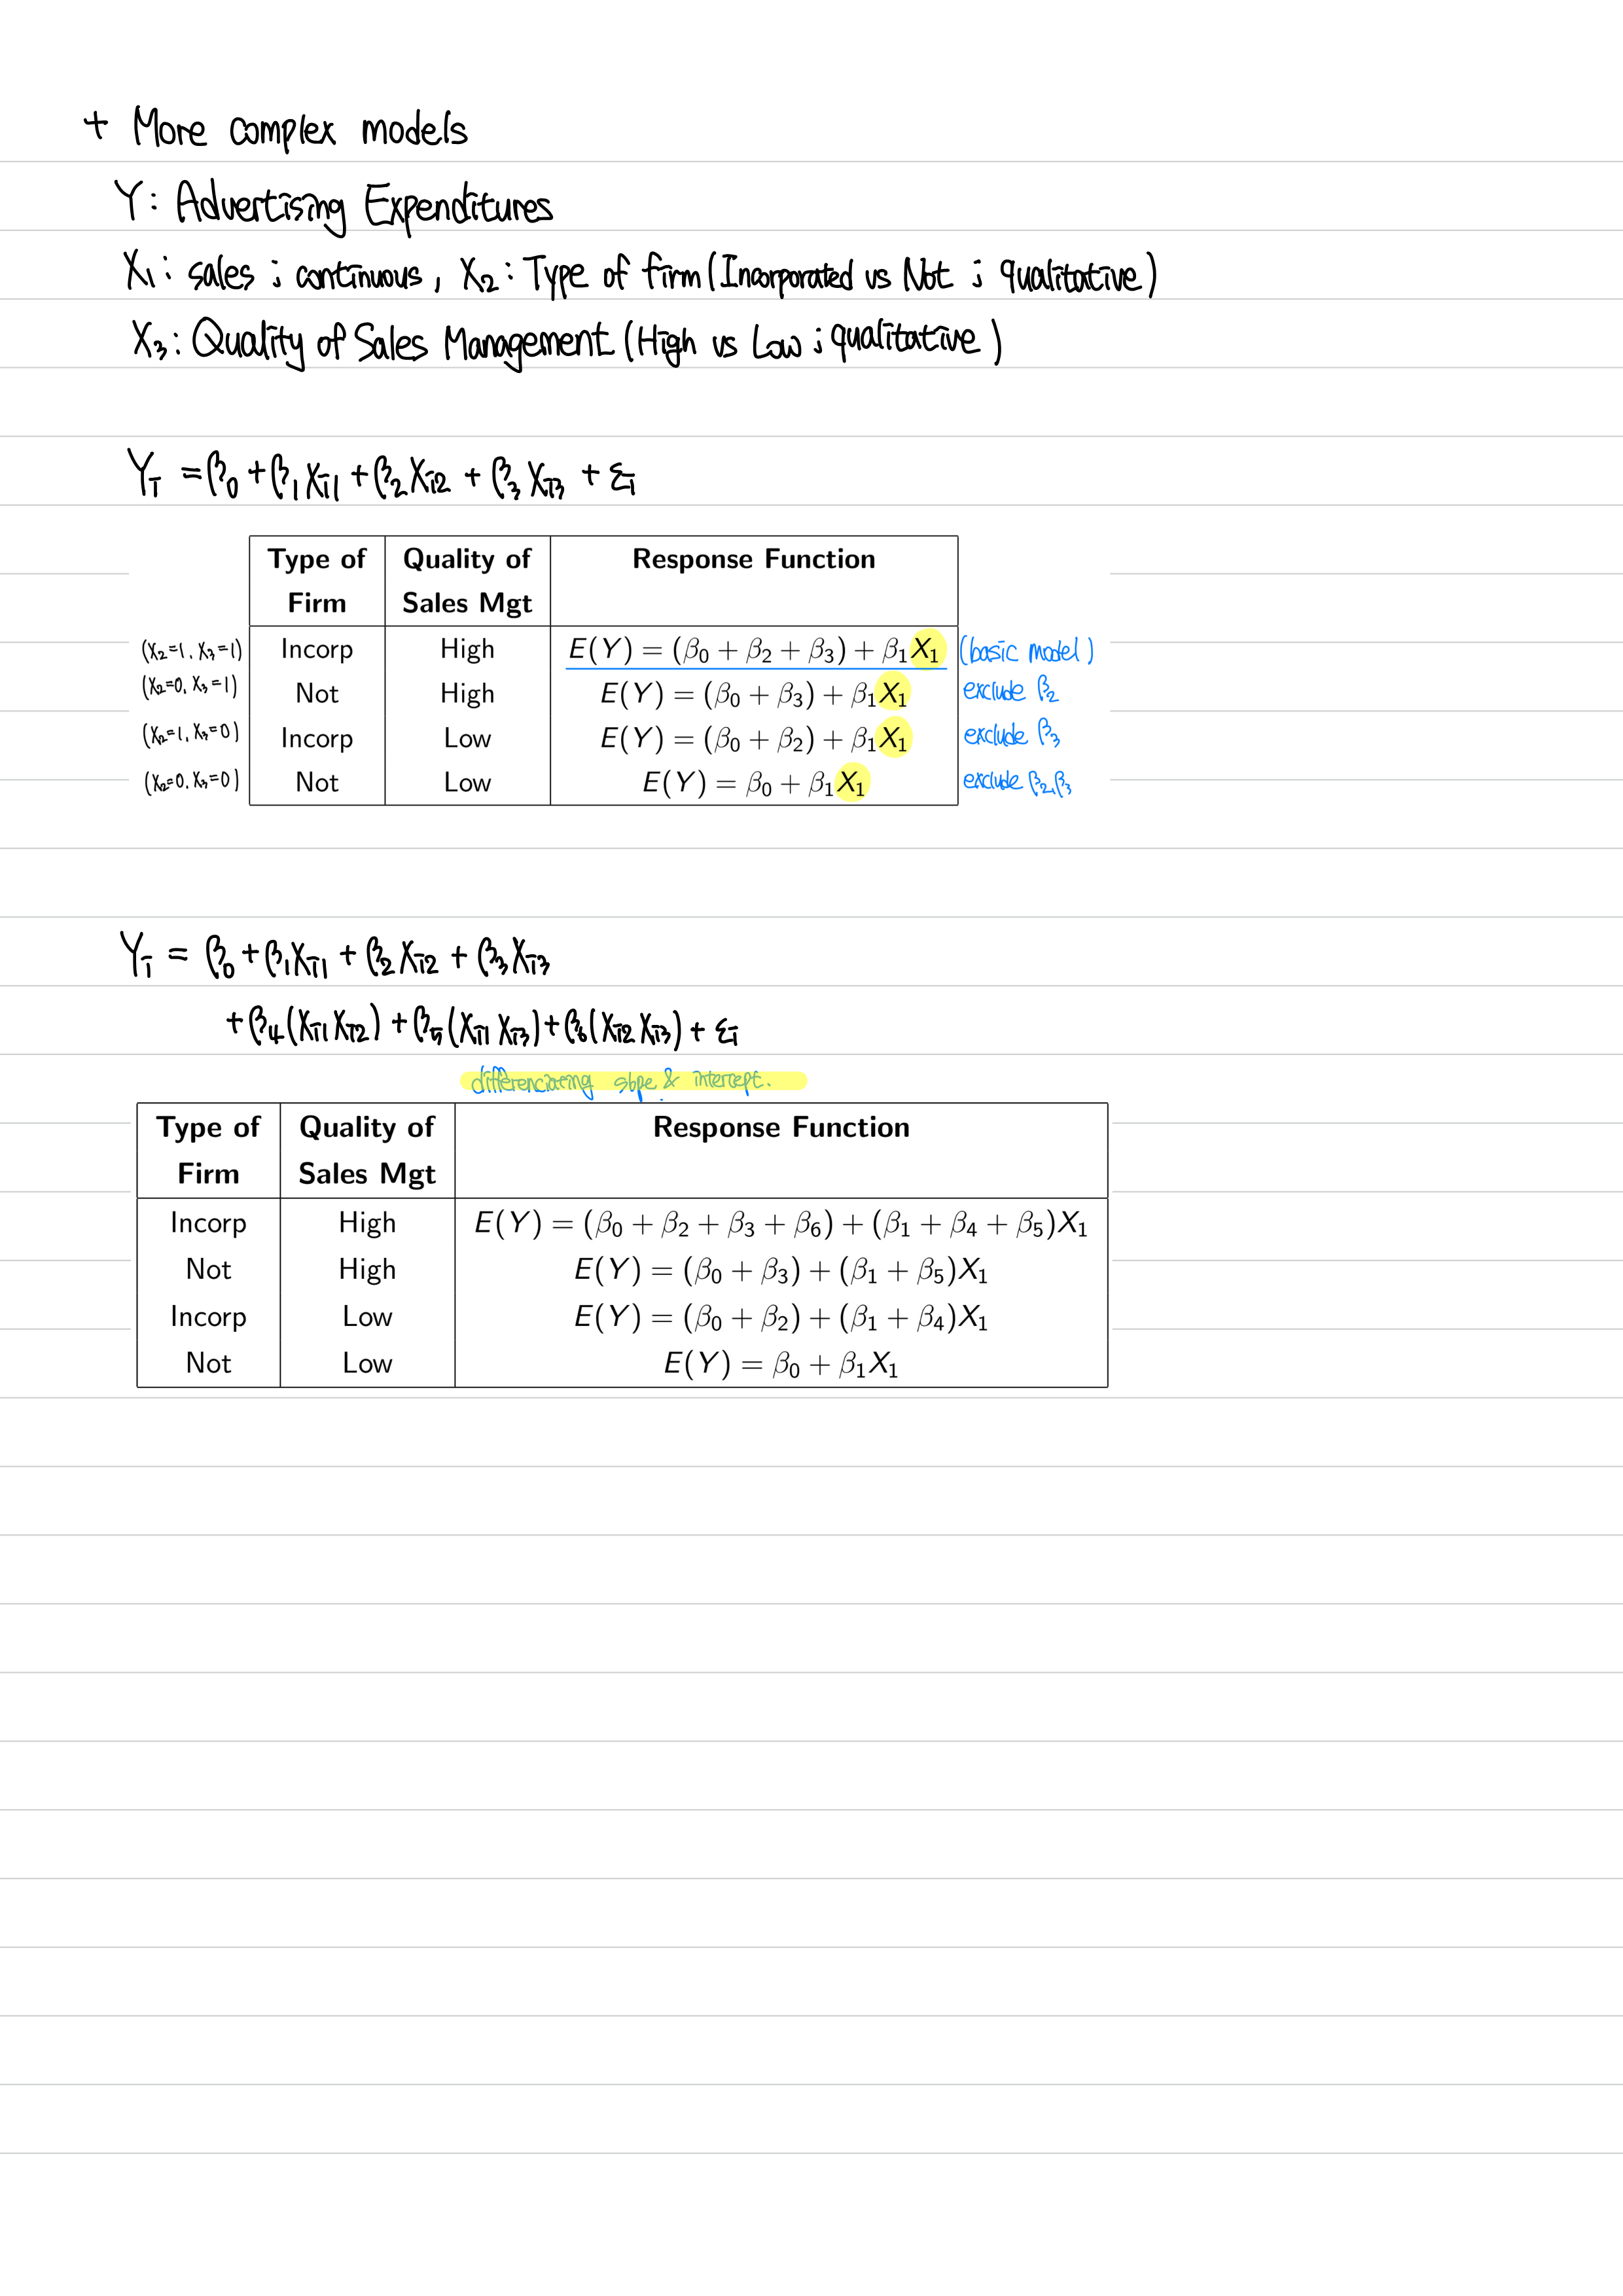 + More complex models
Y: Advertising Expenditures
X₁: sales ; continuous, X₂: Type of firm (Incorporated vs Not ; qualitative)
X₃: Quality of Sales Management (High vs Low ; qualitative)
Yᵢ = β₀ + β₁Xᵢ₁ + β₂Xᵢ₂ + β₃Xᵢ₃ + εᵢ
Type of Firm Quality of Sales Mgt Response Function
(X₂=1, X₃=1) Incorp High E(Y) = (β₀ + β₂ + β₃) + β₁X₁ (basic model)
(X₂=0, X₃=1) Not High E(Y) = (β₀ + β₃) + β₁X₁ exclude β₂
(X₂=1, X₃=0) Incorp Low E(Y) = (β₀ + β₂) + β₁X₁ exclude β₃
(X₂=0, X₃=0) Not Low E(Y) = β₀ + β₁X₁ exclude β₂,β₃
Yᵢ = β₀ + β₁Xᵢ₁ + β₂Xᵢ₂ + β₃Xᵢ₃
+ β₄(Xᵢ₁Xᵢ₂) + β₅(Xᵢ₁Xᵢ₃) + β₆(Xᵢ₂Xᵢ₃) + εᵢ
differenciating slope & intercept.
Type of Firm Quality of Sales Mgt Response Function
Incorp High E(Y) = (β₀ + β₂ + β₃ + β₆) + (β₁ + β₄ + β₅)X₁
Not High E(Y) = (β₀ + β₃) + (β₁ + β₅)X₁
Incorp Low E(Y) = (β₀ + β₂) + (β₁ + β₄)X₁
Not Low E(Y) = β₀ + β₁X₁